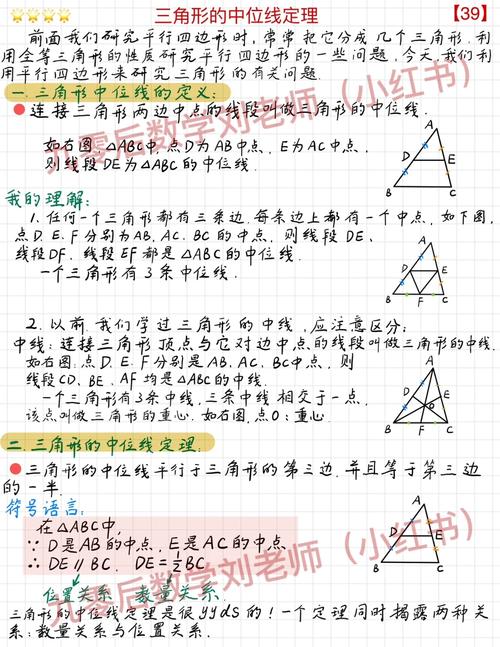 三角形的中位线定理
【39】
前面我们研究平行四边形时,常常把它分成几个三角形,利
用全等三角形的性质研究平行四边形的一些问题,今天我们利
用平行四边形来研究三角形的有关问题.
一.三角形中位线的定义:
连接三角形两边中点的线段叫做三角形的中位线.
如右图,△ABC中,点D为AB中点,E为AC中点,
则线段DE为△ABC的中位线.
A
D
E
B
C
我的理解:
1.任何一个三角形都有三条边.每条边上都有一个中点.如下图,
点D.E.F分别为AB.AC.BC的中点,则线段DE、
线段DF、线段EF都是△ABC的中位线.
一个三角形有3条中位线.
A
D
E
B
F
C
2.以前,我们学过三角形的中线,应注意区分:
中线:连接三角形顶点与它对边中点的线段叫做三角形的中线.
如右图,点D.E.F分别是AB.AC.BC中点,则
线段CD、BE、AF均是△ABC的中线.
一个三角形有3条中线,三条中线相交于一点,
该点叫做三角形的重心.如右图,点O:重心.
A
D
E
O
B
F
C
二.三角形的中位线定理:
三角形的中位线平行于三角形的第三边.并且等于第三边
的一半.
符号语言:
在△ABC中,
∵D是AB的中点,E是AC的中点
∴DE∥BC,DE=½BC
位置关系 数量关系
A
D
E
B
C
三角形的中位线定理是很yyds的!一个定理同时揭露两种关
系:数量关系与位置关系.
九零后数学刘老师(小红书)
九零后数学刘老师(小红书)